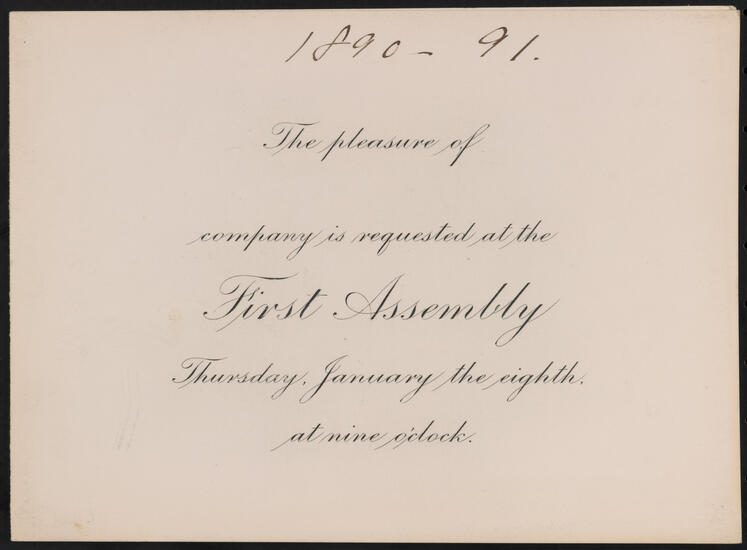 1890 - 91.
The pleasure of
company is requested at the
First Assembly
Thursday, January the eighth,
at nine o'clock.